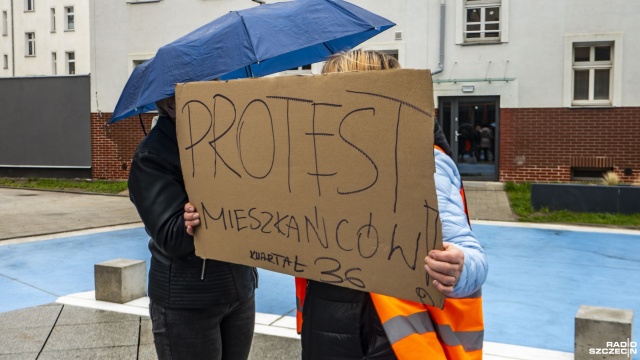 PROTEST
MIESZKAŃCÓW!
KWARTAŁ 36
RADIO
SZCZECIN